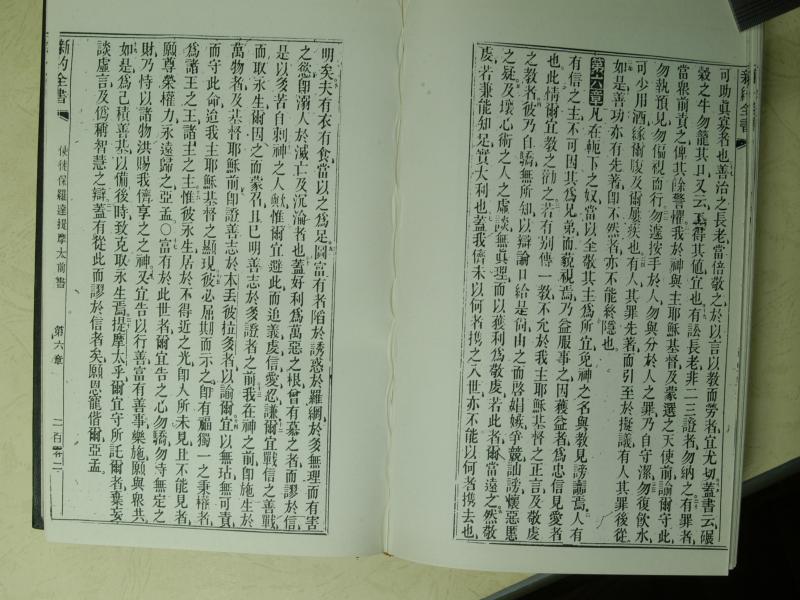 新約全書
可助眞寡者也善治之長老當倍敬之於以言以教而勞者宜尤切蓋書云碾
穀之牛勿籠其口又云工得其値宜也有訟長老非二三證者勿納之有罪者
當眾前責之俾其餘警懼我於神與主耶穌基督及蒙選之天使前諭爾守此
勿執預見勿偏視而行勿遽按手於人勿與分於人之罪乃自守潔勿復飲水
可少用酒緣爾腹及爾屢疾也有人其罪先著而引至於擬議有人其罪後從
如是善功亦有先著卽不然者亦不能終隱也
第六章凡在軛下之奴當以全敬其主爲所宜免神之名與教見謗讟焉人有
有信之主不可因其爲兄弟而藐視焉乃益服事之因獲益者爲忠信見愛者
也此情爾宜教之勸之若有別傳一教不允於我主耶穌基督之正言及敬虔
之教者彼乃自驕無所知以辯論日給是尙由之而啓娼嫉爭競訕謗懷惡慝
之疑及壞心術之人之虛談無眞理而以獲利爲敬虔若此者爾當遠之然敬
虔若兼能知足實大利也蓋我儕未以何者攜之入世亦不能以何者攜去也
明矣夫有衣有食當以之爲足圖富有者陷於誘惑於羅網於多無理而有害
之慾卽溺人於滅亡及沉淪者也蓋好利爲萬惡之根曾有慕之者而謬於信
是以多苦自刺神之人歟惟爾宜避此而追義虔信愛忍謙爾宜戰信之善戰
而取永生爾因之而蒙召且已明善志於多證者之前我在神之前卽施生於
萬物者及基督耶穌前卽證善志於本丟彼拉多者以諭爾宜以無玷無可責
而守此命迨我主耶穌基督之顯現彼必屆期而示之卽有福獨一之秉權者
爲諸王之王諸主之主惟彼永生居於不得近之光卽人所未見且不能見者
願尊榮權力永遠歸之亞孟○富有於此世者爾宜告之心勿驕勿寺無定之
財乃恃以諸物洪賜我儕享之之神又宜告以行善富有善事樂施願與眾共
如是爲己積善基以備後時致克取永生焉提摩太乎爾宜守所託爾者棄妄
談虛言及僞稱智慧之辯蓋有從此而謬於信者矣願恩寵偕爾亞孟
新約全書 使徒保羅達提摩太前書 第六章 二百零二